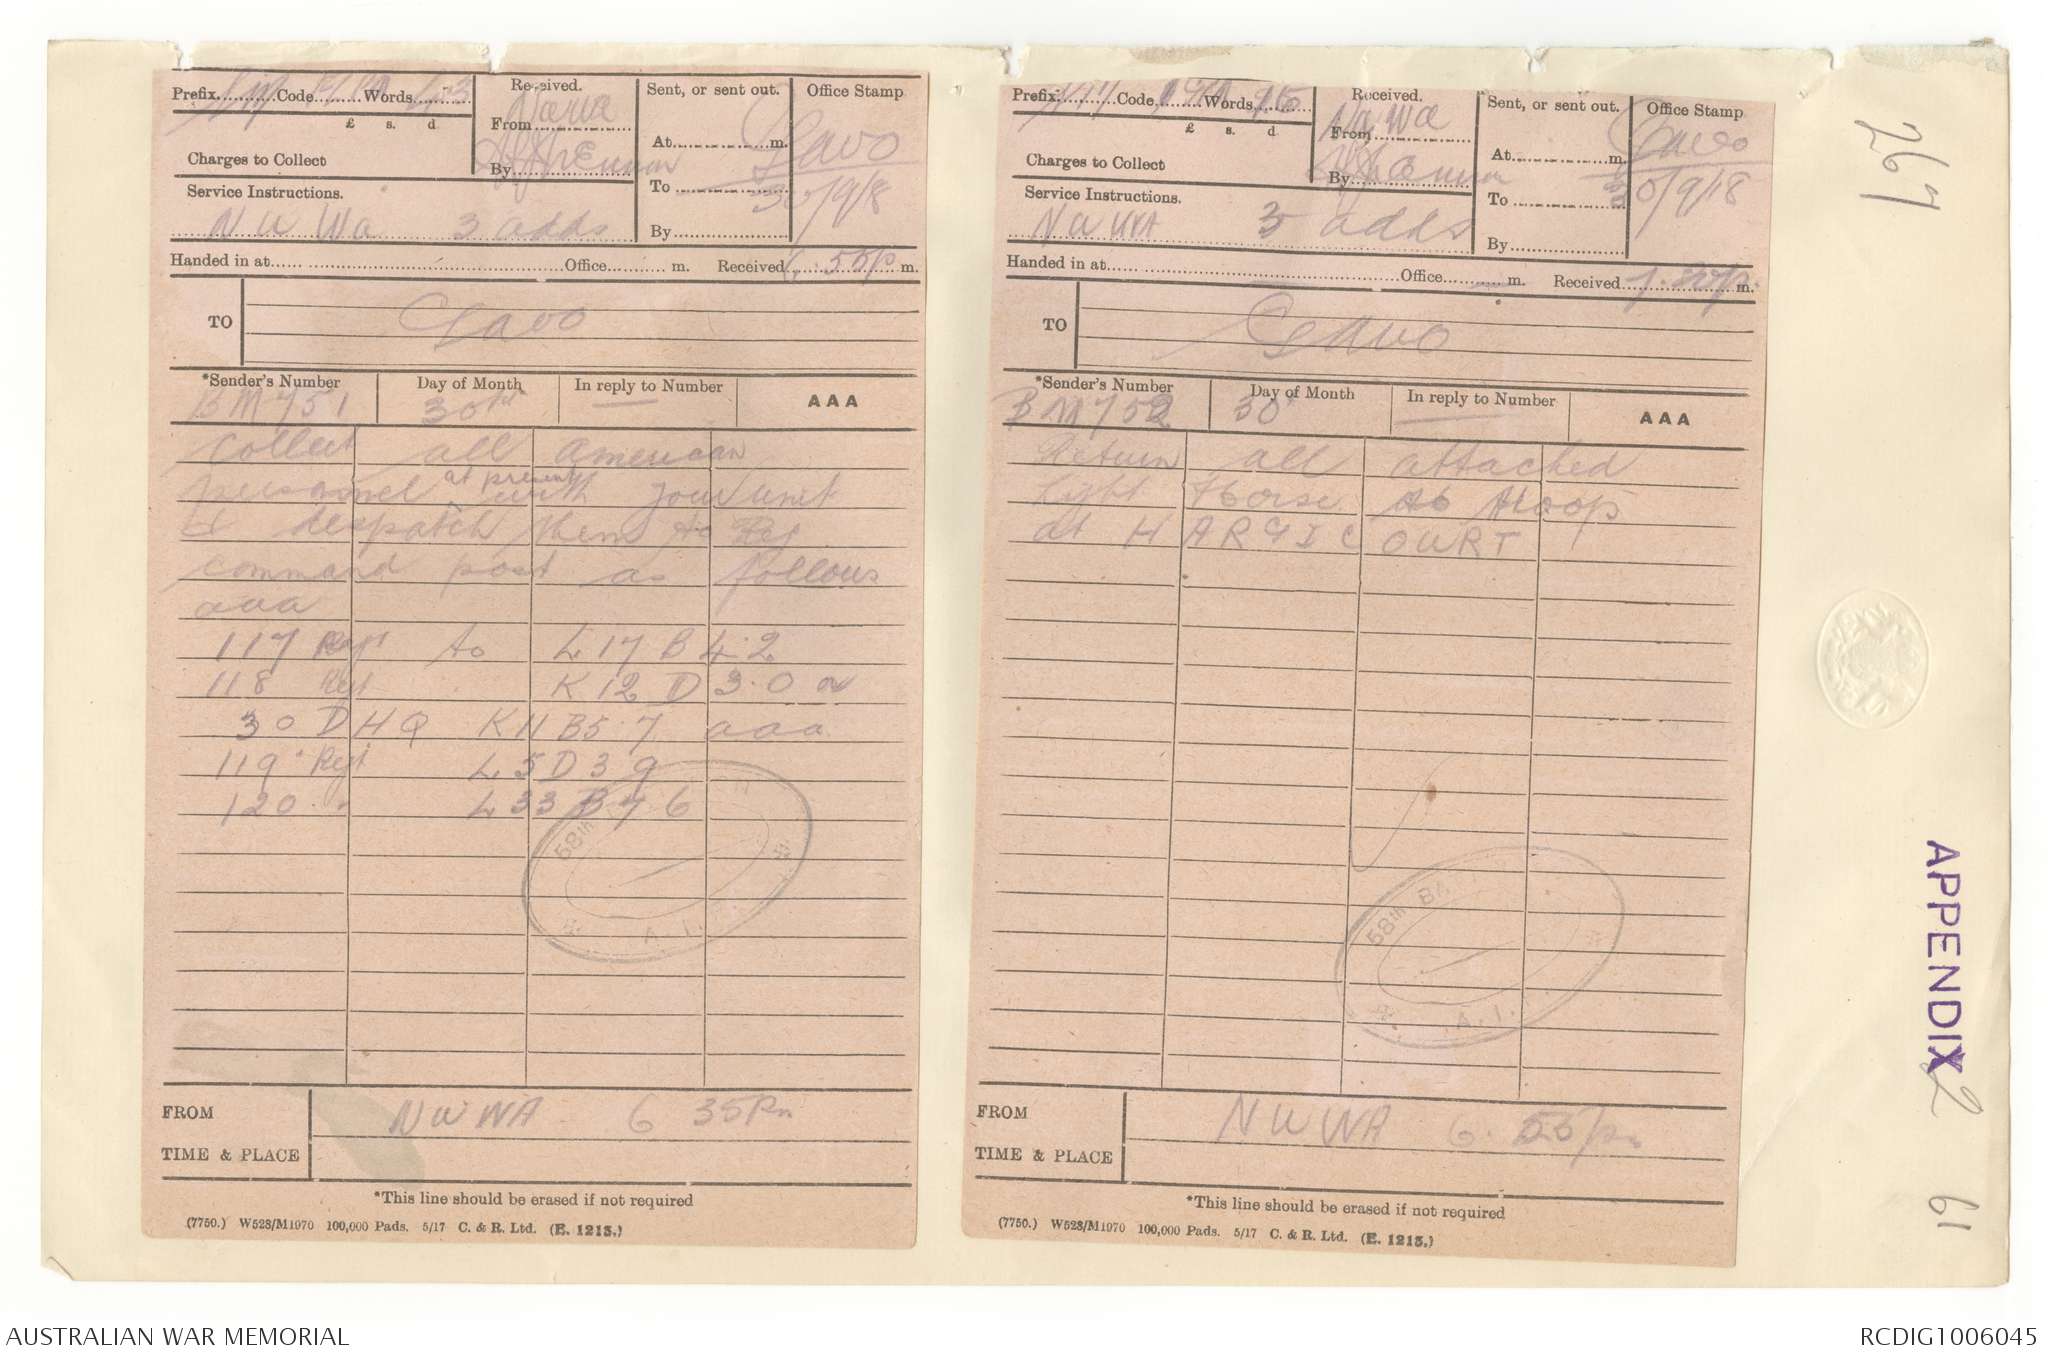 Prefix..........Code........Words..........
£ s. d
Charges to Collect
Service Instructions.
NUWa 3 adds
Received.
From Nuwa
By
Sent, or sent out.
At....................m.
To
By
Office Stamp
30/9/18
Handed in at.................................................Office............ m. Received 6.55p m.
TO
*Sender's Number
BM751
Day of Month
30th
In reply to Number
—
AAA
Collect all American
personnel at present with your unit
& despatch them to Reg
command post as follows
aaa
117 Regt to L17B4.2
118 Regt K12D3.0 or
30 DHQ K11B5.7 aaa
119 Regt L5D39
120 " L33B76
58th
A.I.
FROM
TIME & PLACE
NUWA 6 35Pm
*This line should be erased if not required
(7750.) W523/M1970 100,000 Pads. 5/17 C. & R. Ltd. (E. 1213.)
Prefix..........Code........Words..........
£ s. d
Charges to Collect
Service Instructions.
NUWA 3 adds
Received.
From NuWa
By
Sent, or sent out.
At....................m.
To
By
Office Stamp
30/9/18
Handed in at.................................................Office............ m. Received 7.30p. m.
TO
*Sender's Number
BM752
Day of Month
30
In reply to Number
—
AAA
Return all attached
light Horse to troop
at HARGICOURT
58th BA
A.I.
FROM
TIME & PLACE
NUWA 6.55pm
*This line should be erased if not required
(7750.) W523/M1970 100,000 Pads. 5/17 C. & R. Ltd. (E. 1213.)
267
APPENDIX 2
61
AUSTRALIAN WAR MEMORIAL
RCDIG1006045